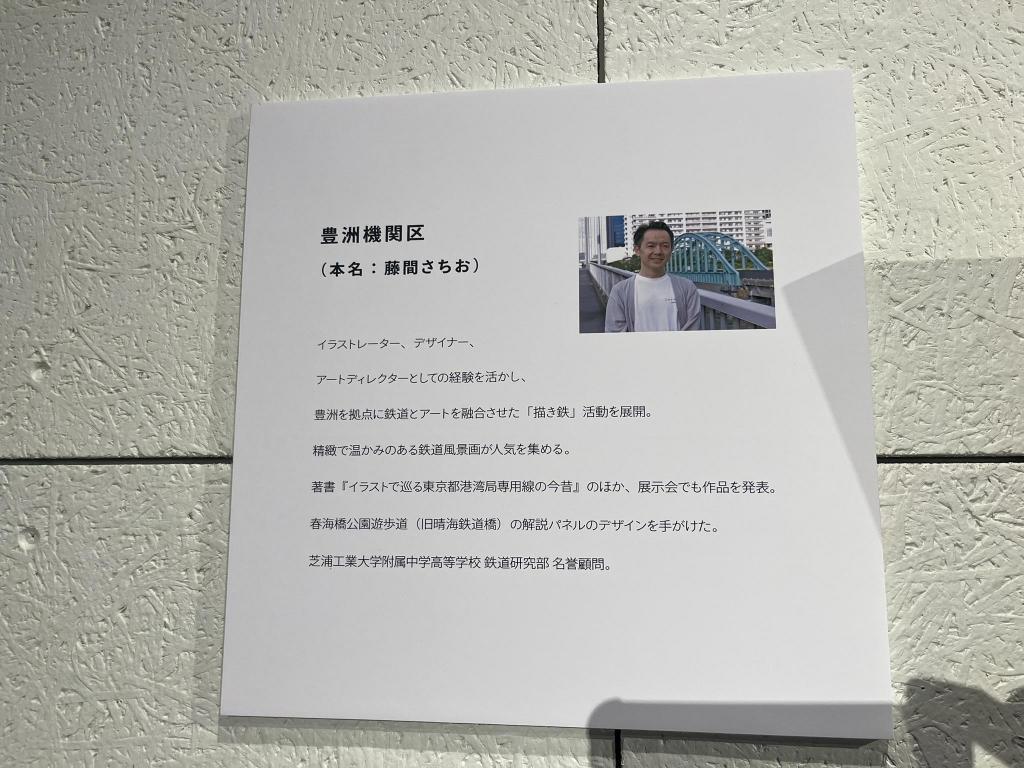 豊洲機関区
（本名：藤間さちお）
イラストレーター、デザイナー、
アートディレクターとしての経験を活かし、
豊洲を拠点に鉄道とアートを融合させた「描き鉄」活動を展開。
精緻で温かみのある鉄道風景画が人気を集める。
著書『イラストで巡る東京都港湾局専用線の今昔』のほか、展示会でも作品を発表。
春海橋公園遊歩道（旧晴海鉄道橋）の解説パネルのデザインを手がけた。
芝浦工業大学附属中学高等学校 鉄道研究部 名誉顧問。